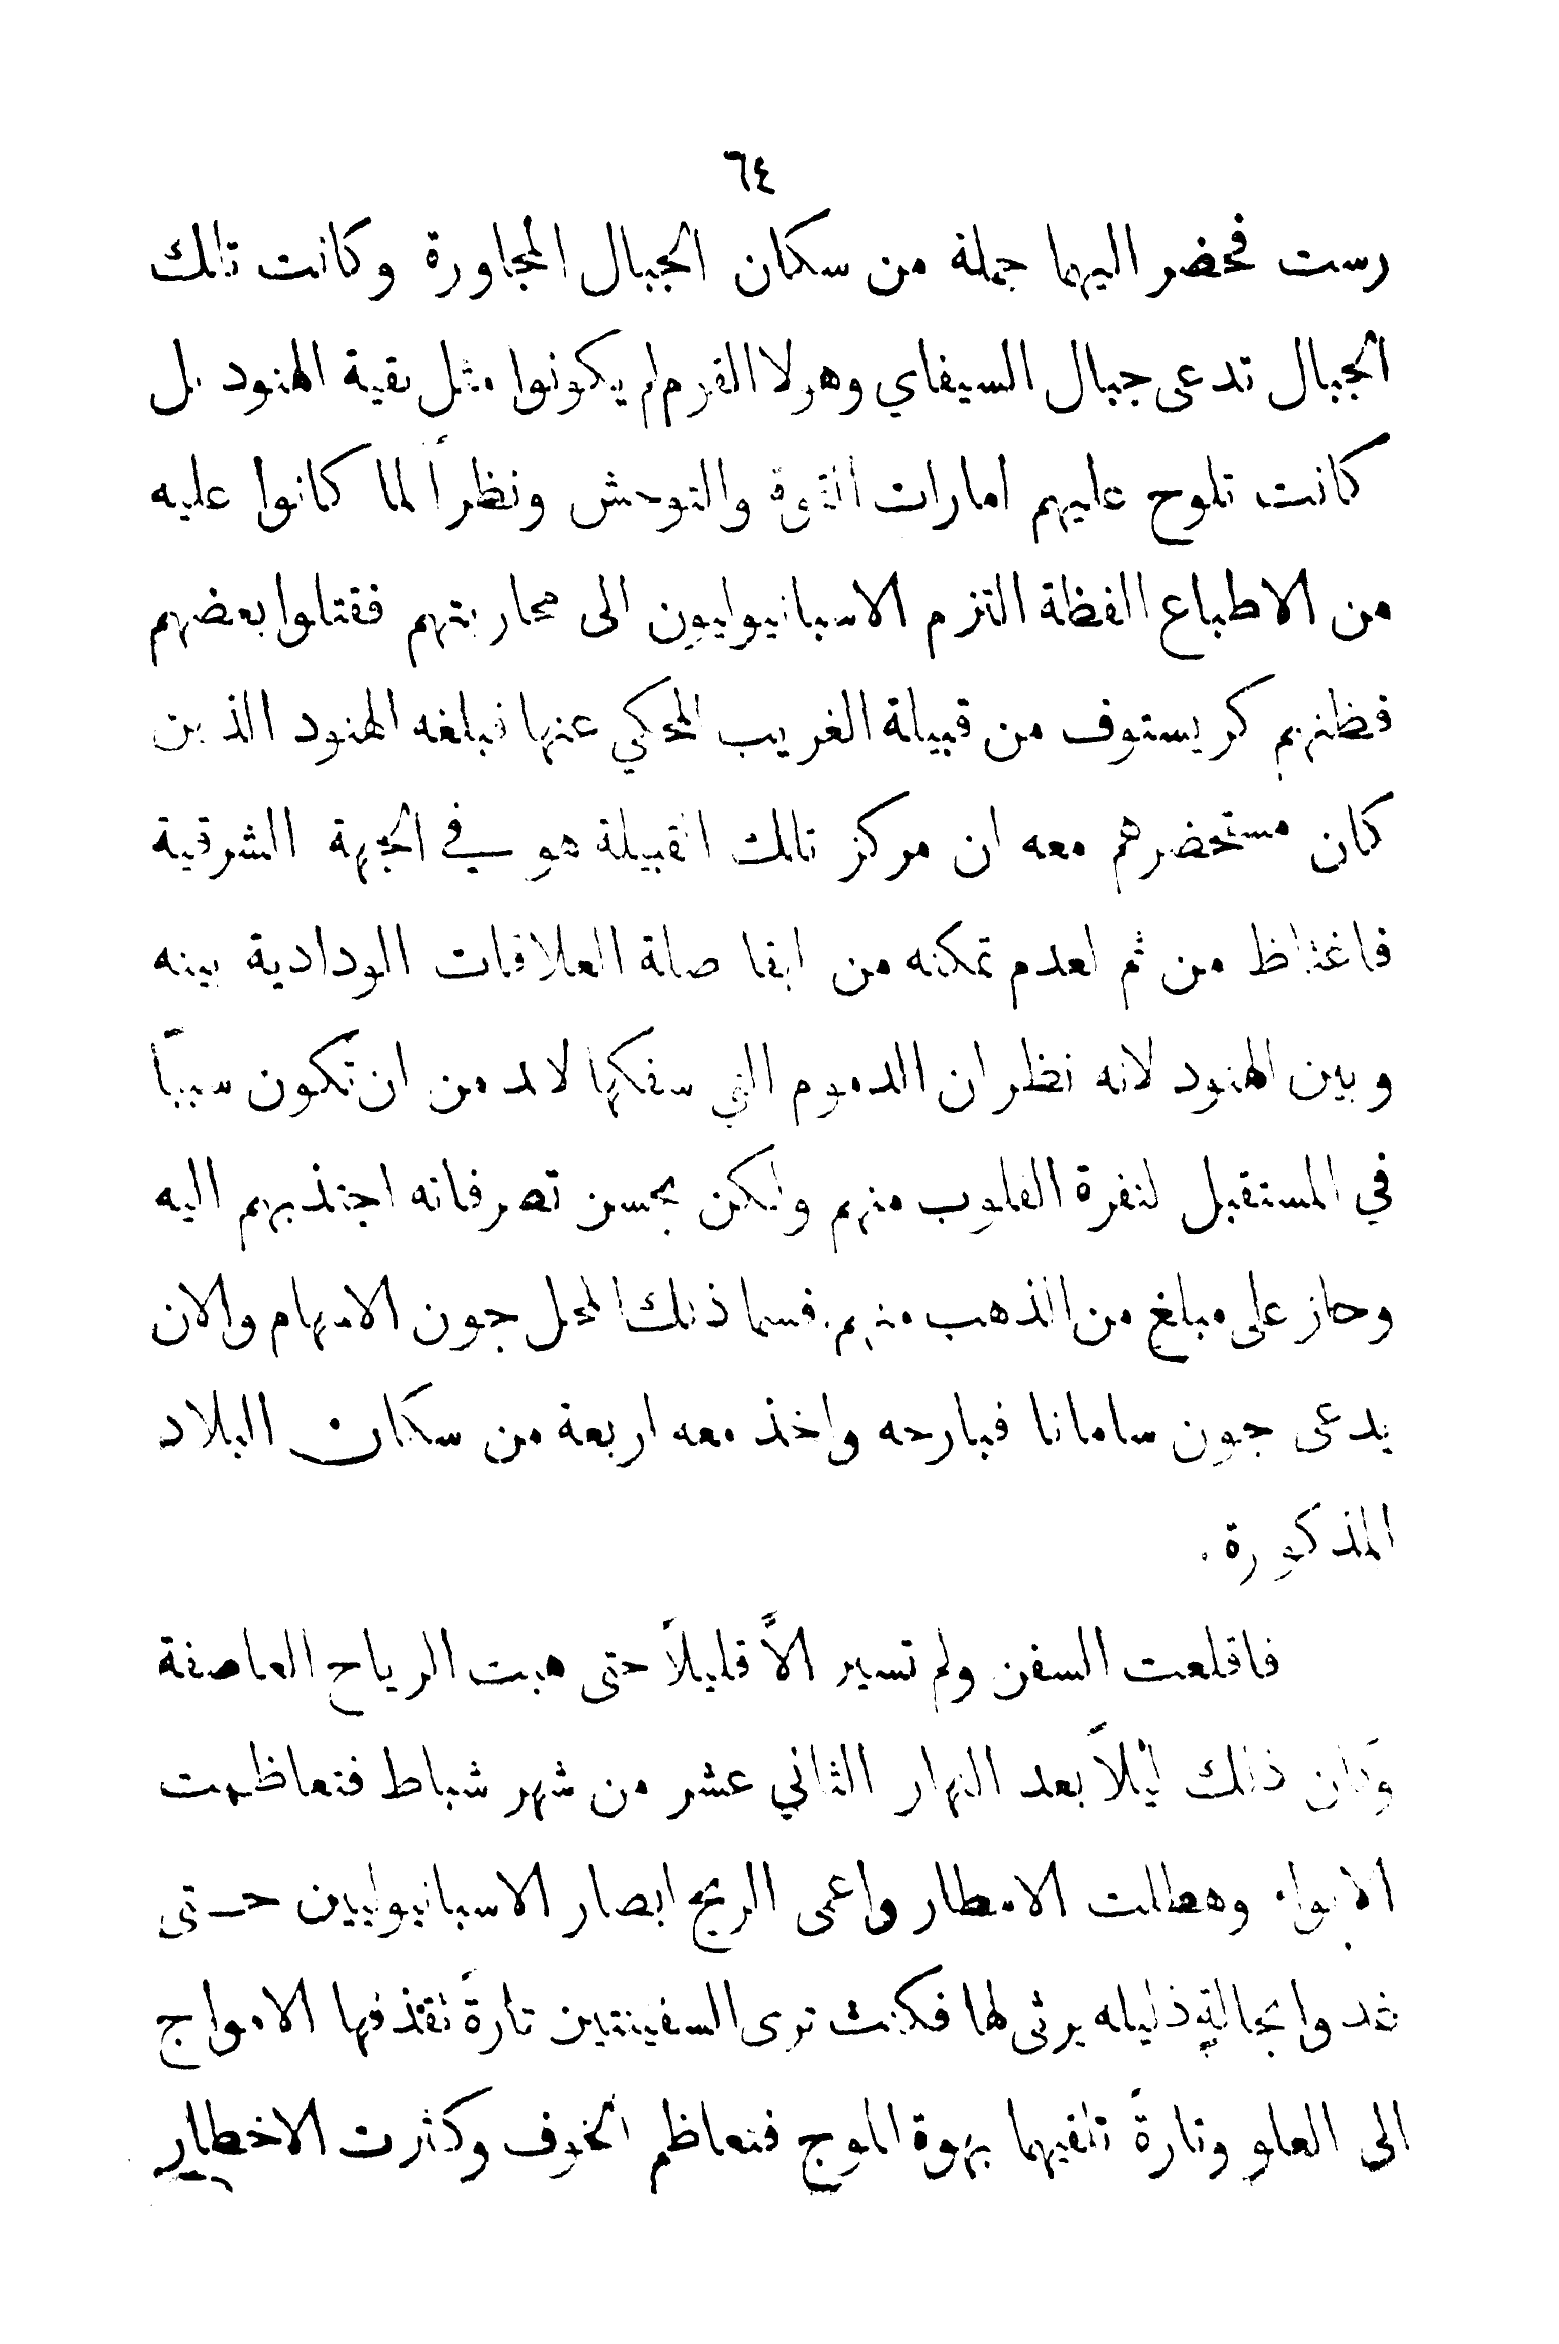 ٦٤
رست فحضر اليهما جملة من سكان الجبال المجاورة وكانت تلك
الجبال تدعى جبال السيفاي وهولا القوم لم يكونوا مثل بقية الهنود بل
كانت تلوح عليهم امارات القوة والتوحش ونظراً لما كانوا عليه
من الاطباع الفظة التزم الاسبانيوليون الى محاربتهم فقتلوا بعضهم
فظنهم كريستوف من قبيلة الغريب المحكي عنها فبلغه الهنود الذين
كان مستحضرهم معه ان مركز تلك القبيلة هو في الجهة الشرقية
فاغتاظ من ثم لعدم تمكنه من ابقا صلة العلاقات الودادية بينه
وبين الهنود لانه نظر ان الدموم التي سفكها لابد من ان تكون سبباً
في المستقبل لنفرة القلوب منهم ولكن بحسن تصرفاته اجتذبهم اليه
وحاز على مبلغ من الذهب منهم فسما ذلك المحل جون الاسهام والان
يدعى جون سامانا فبارحه واخذ معه اربعة من سكان البلاد
المذكورة .
فاقلعت السفن ولم تسير الاَّ قليلاً حتى هبت الرياح العاصفة
وكان ذلك ليلاً بعد النهار الثاني عشر من شهر شباط فتعاظمت
الانواء وهطلت الامطار واعمى الريح ابصار الاسبانيوليين حتى
غدوا بحالةٍ ذليله يرثى لها فكنت ترى السفينتين تارةً تقذفها الامواج
الى العلو وتارةً تلقيهما بهوة الموج فتعاظم الخوف وكثرت الاخطار